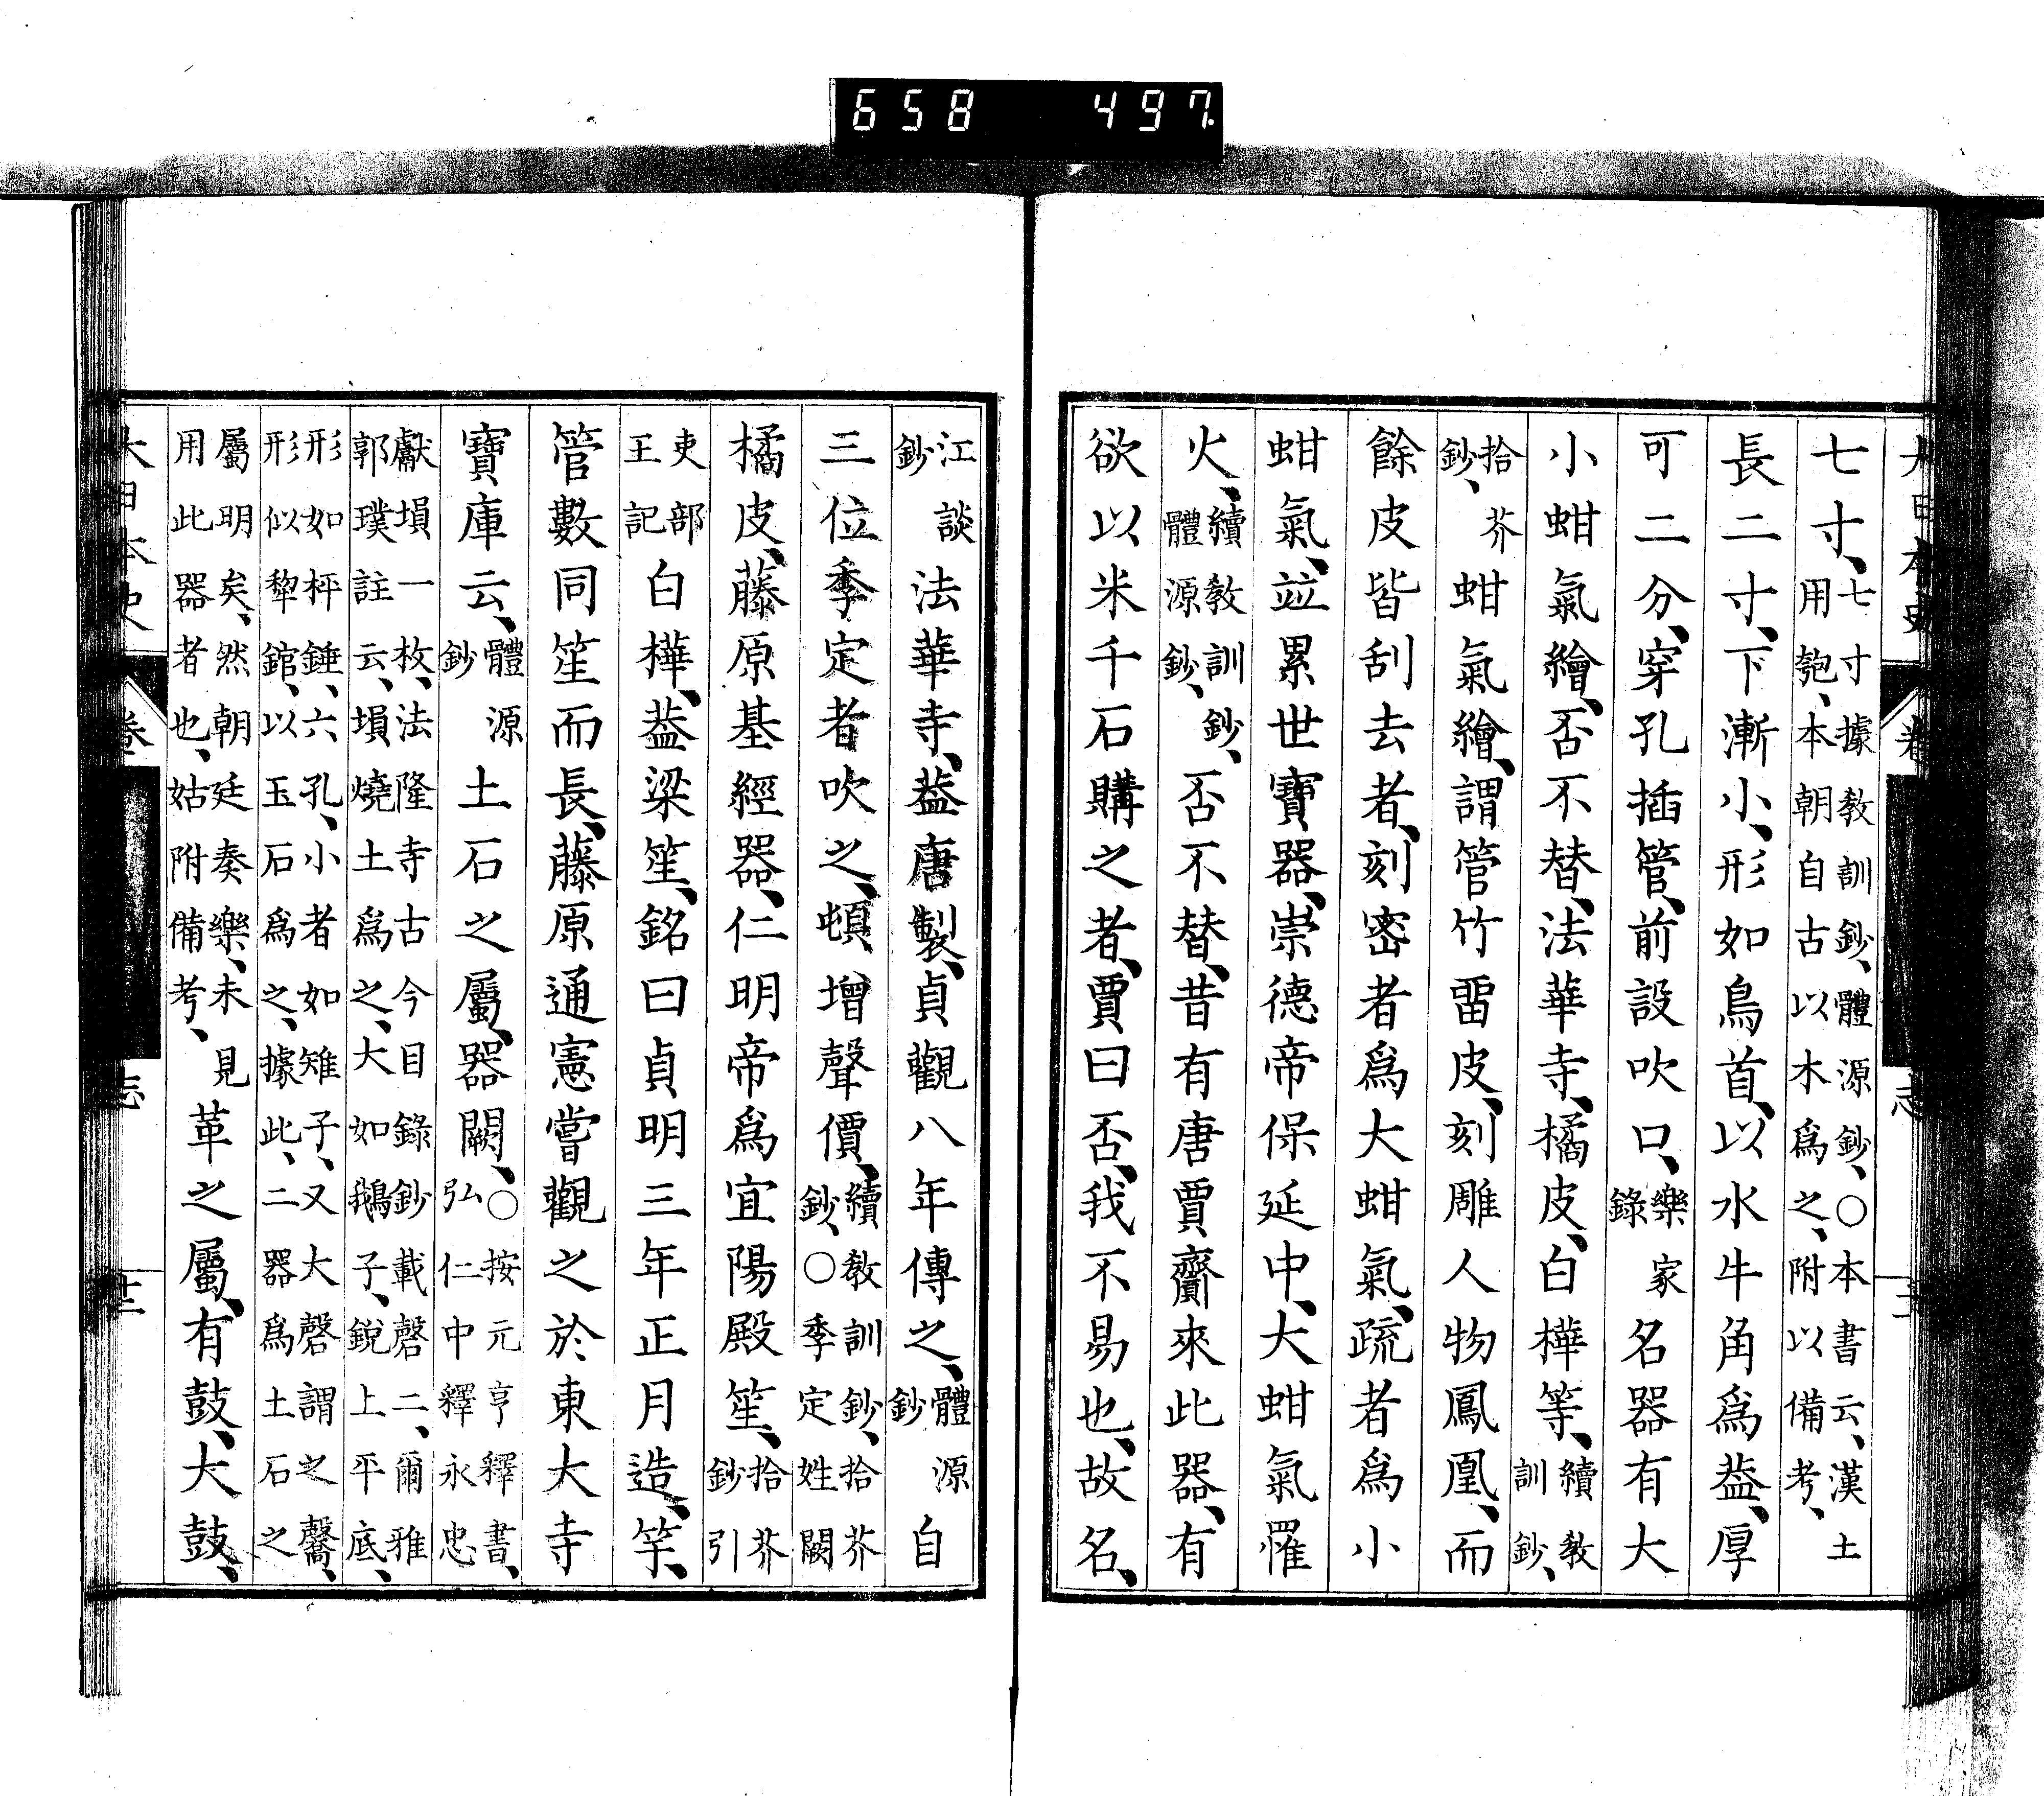 658 497.
七寸、七寸據教訓鈔、體源鈔、○本書云、漢土用匏、本朝自古以木爲之、附以備考、
長二寸、下漸小、形如鳥首、以水牛角爲葢、厚
可二分、穿孔插管、前設吹口、樂家錄名器有大
小蚶氣繪、否不替、法華寺、橘皮、白樺等、續教訓鈔、
拾芥鈔、蚶氣繪、謂管竹畱皮、刻雕人物鳳凰、而
餘皮皆刮去者、刻密者爲大蚶氣、疏者爲小
蚶氣、竝累世寶器、崇德帝保延中、大蚶氣罹
火、續教訓鈔、體源鈔、否不替、昔有唐賈齎來此器、有
欲以米千石購之者、賈曰否、我不易也、故名、
江談鈔法華寺、葢唐製、貞觀八年傳之、體源鈔自
三位季定者吹之、頓增聲價、續教訓鈔、拾芥鈔、○季定姓闕
橘皮、藤原基經器、仁明帝爲宜陽殿笙、拾芥鈔引
吏部王記白樺、葢梁笙、銘曰貞明三年正月造、竽、
管數同笙而長、藤原通憲嘗觀之於東大寺
寶庫云、體源鈔土石之屬、器闕、○按元亨釋書、弘仁中釋永忠
獻塤一枚、法隆寺古今目錄鈔載磬二、爾雅郭璞註云、塤燒土爲之、大如鵝子、銳上平底、
形如枰錘、六孔、小者如雉子、又大磬謂之馨、形似犂錧、以玉石爲之、據此、二器爲土石之
屬明矣、然朝廷奏樂、未見用此器者也、姑附備考、革之屬、有鼓、大鼓、